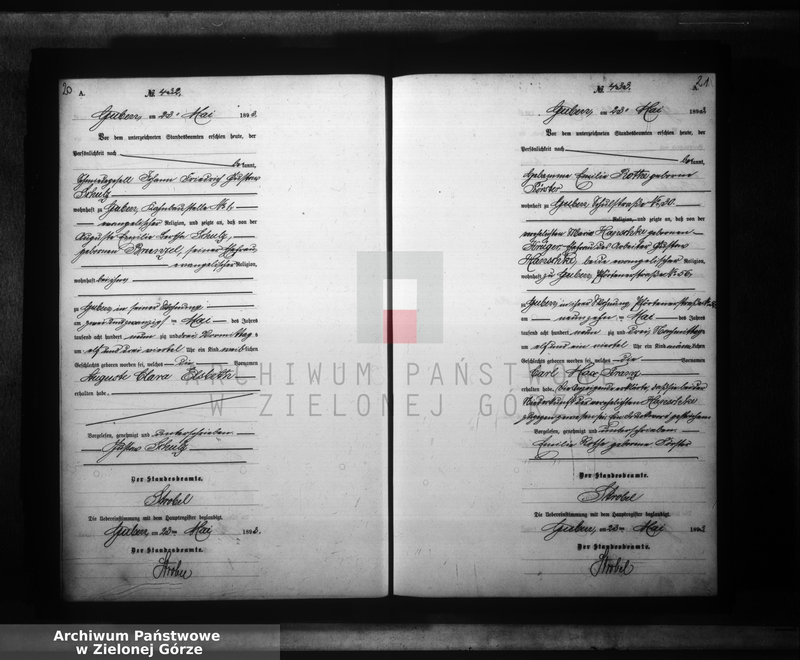 20
A.
№ 432.
Guben, am 23. Mai 1893.
Vor dem unterzeichneten Standesbeamten erschien heute, der
Persönlichkeit nach
be kannt,
Johann Friedrich Gustav
Schulz
wohnhaft zu Guben,
evangelischer Religion, und zeigte an, daß von der
Auguste Emilie Bertha Schulz,
geborenen seiner Ehefrau
evangelischer Religion,
wohnhaft bei ihm
zu Guben in seiner Wohnung
am zwei und zwanzigsten Mai des Jahres
tausend acht hundert neun zig und drei Vormittags
um elf und drei viertel Uhr ein Kind weiblichen
Geschlechts geboren worden sei, welches die Vornamen
Auguste Clara Elsbeth
erhalten habe.
Vorgelesen, genehmigt und unterschrieben
Gustav Schulz
Der Standesbeamte.
Strobel
Die Uebereinstimmung mit dem Hauptregister beglaubigt.
Guben, am 23ten Mai 1893.
Der Standesbeamte.
Strobel
21
A.
№ 433.
Guben, am 23. Mai 1893
Vor dem unterzeichneten Standesbeamten erschien heute, der
Persönlichkeit nach
be kannt,
Hebamme Emilie Rothe geborene
Förster
wohnhaft zu Guben,
Religion, und zeigte an, daß von der
verehelichten Maria Hanschke geborenen
Krüger, Ehefrau des Arbeiter Gustav
Hanschke, beide evangelischer Religion,
wohnhaft zu Guben, Pförtenerstraße № 56
zu Guben in ihrer Wohnung Pförtenerstraße №
am neunzehnten Mai des Jahres
tausend acht hundert neun zig und drei Nachmittags
um elf und ein viertel Uhr ein Kind männlichen
Geschlechts geboren worden sei, welches die Vornamen
Carl Max Franz
erhalten habe. Die Anzeigende erklärte, daß sie bei der
Niederkunft der verehelichten Hanschke
zugegen gewesen sei.
Vorgelesen, genehmigt und unterschrieben
Emilie Rothe geborene Förster
Der Standesbeamte.
Strobel
Die Uebereinstimmung mit dem Hauptregister beglaubigt.
Guben, am 23ten Mai 1893
Der Standesbeamte.
Strobel
ARCHIWUM PAŃSTWOWE
W ZIELONEJ GÓRZE
Archiwum Państwowe
w Zielonej Górze